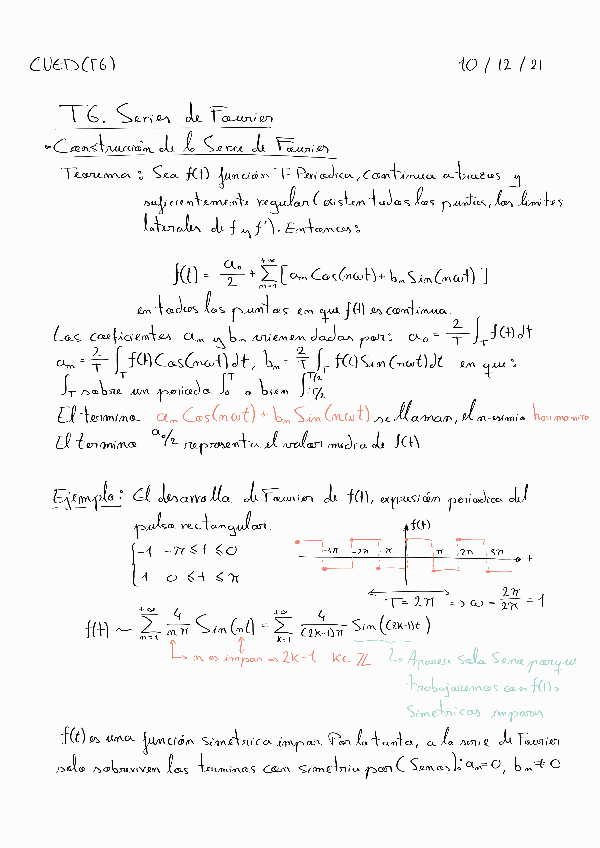 CUED(T6) 10/12/21
T6. Series de Fourier
• Construcción de la Serie de Fourier
Teorema: Sea f(t) función T-Periodica, continua a trazos y
suficientemente regular (existen todos los puntos, los limites
laterales de f y f'). Entonces:
f(t) = a₀/2 + Σ_{n=1}^{+∞} [an Cos(nωt) + bn Sin(nωt)]
en todos los puntos en que f(t) es continua.
Los coeficientes an y bn vienen dados por: a₀ = 2/T ∫_T f(t)dt
an = 2/T ∫_T f(t) Cos(nωt)dt, bn = 2/T ∫_T f(t) Sin(nωt)dt en que:
∫_T sobre un periodo ∫_0^T o bien ∫_{-T/2}^{T/2}
El termino an Cos(nωt) + bn Sin(nωt) se llaman, el n-esimo harmonico
El termino a₀/2 representa el valor medio de f(t)
Ejemplo: El desarrollo de Fourier de f(t), expresión periodica del
pulso rectangular.
f(t)
{ -1 -π ≤ t ≤ 0
-3π -2π -π π 2π 3π t
1 0 ≤ t ≤ π
T = 2π => ω = 2π/2π = 1
f(t) ~ Σ_{n=1}^{+∞} 4/nπ Sin(nt) = Σ_{k=1}^{+∞} 4/(2k-1)π Sin((2k-1)t)
↳ n es impar => 2k-1 k ∈ ℤ
↳ Aparece solo Seno porque
trabajaremos con f(t)s
Simétricas impares
f(t) es una función simétrica impar. Por lo tanto, a la serie de Fourier
solo sobreviven los terminos con simetria par (Senos): an=0, bn≠0